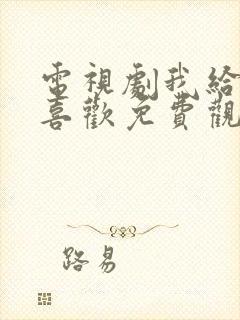 電視劇我給
喜歡免費觀
路易